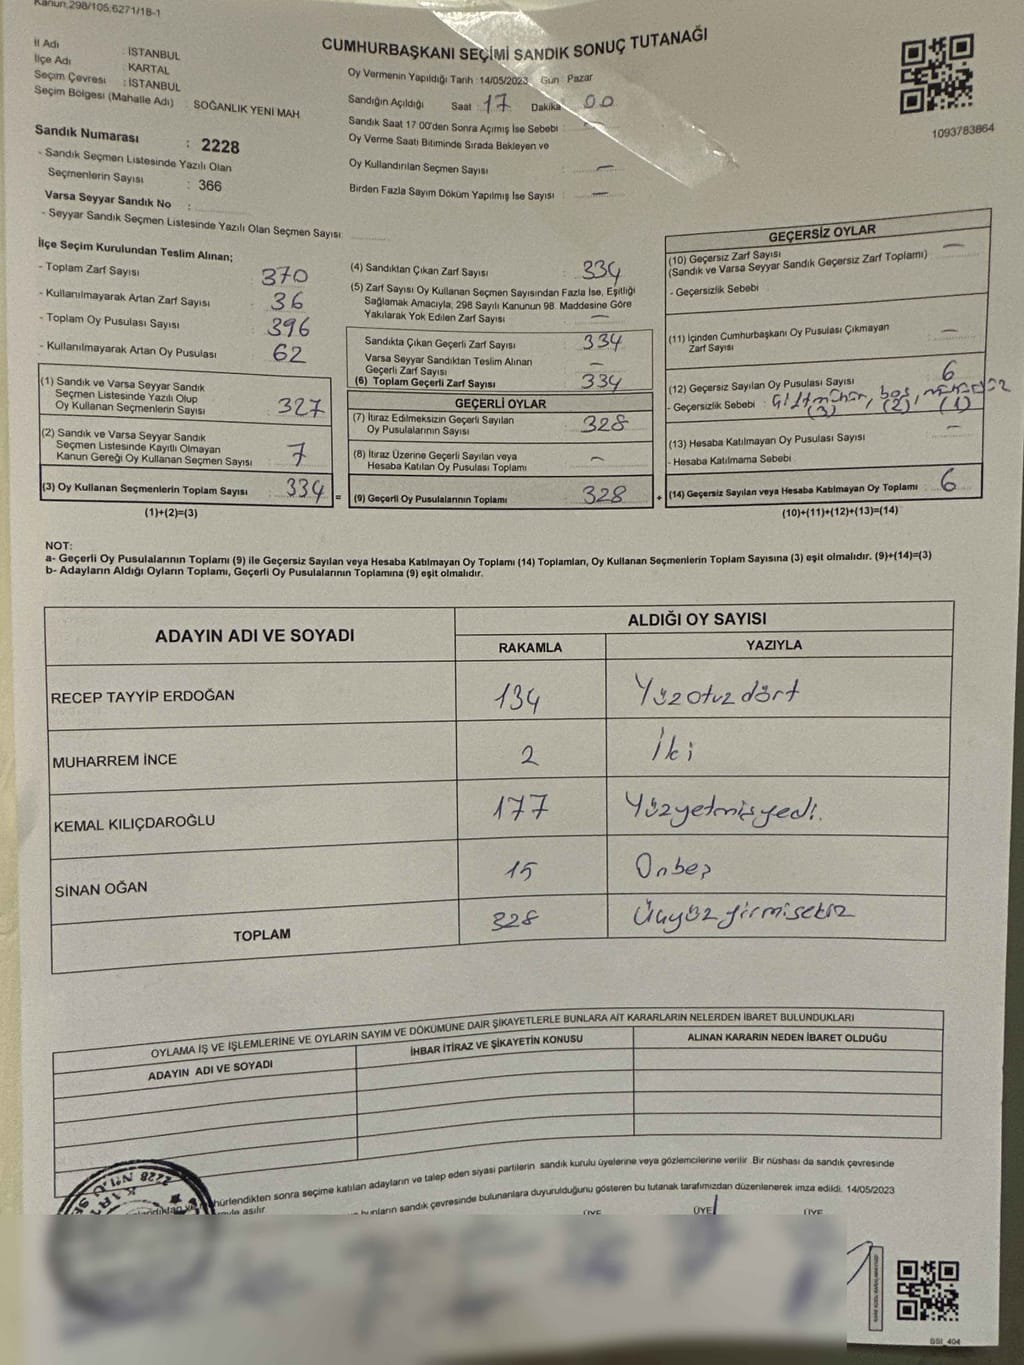 Kanun;298/105;6271/18-1
CUMHURBAŞKANI SEÇİMİ SANDIK SONUÇ TUTANAĞI
İl Adı : İSTANBUL
İlçe Adı : KARTAL
Seçim Çevresi : İSTANBUL
Seçim Bölgesi (Mahalle Adı) : SOĞANLIK YENİ MAH
Sandık Numarası : 2228
- Sandık Seçmen Listesinde Yazılı Olan
Seçmenlerin Sayısı : 366
Varsa Seyyar Sandık No :
- Seyyar Sandık Seçmen Listesinde Yazılı Olan Seçmen Sayısı:
Oy Vermenin Yapıldığı Tarih :14/05/2023 Gün : Pazar
Sandığın Açıldığı Saat 17 Dakika 00
Sandık Saat 17:00'den Sonra Açımış İse Sebebi : —
Oy Verme Saati Bitiminde Sırada Bekleyen ve
Oy Kullandırılan Seçmen Sayısı : —
Birden Fazla Sayım Döküm Yapılmış İse Sayısı : —
1093783864
İlçe Seçim Kurulundan Teslim Alınan;
- Toplam Zarf Sayısı : 370
- Kullanılmayarak Artan Zarf Sayısı : 36
- Toplam Oy Pusulası Sayısı : 396
- Kullanılmayarak Artan Oy Pusulası : 62
(1) Sandık ve Varsa Seyyar Sandık
Seçmen Listesinde Yazılı Olup
Oy Kullanan Seçmenlerin Sayısı : 327
(2) Sandık ve Varsa Seyyar Sandık
Seçmen Listesinde Kayıtlı Olmayan
Kanun Gereği Oy Kullanan Seçmen Sayısı : 7
(3) Oy Kullanan Seçmenlerin Toplam Sayısı : 334 =
(1)+(2)=(3)
(4) Sandıktan Çıkan Zarf Sayısı : 334
(5) Zarf Sayısı Oy Kullanan Seçmen Sayısından Fazla İse, Eşitliği
Sağlamak Amacıyla, 298 Sayılı Kanunun 98. Maddesine Göre
Yakılarak Yok Edilen Zarf Sayısı : —
Sandıkta Çıkan Geçerli Zarf Sayısı : 334
Varsa Seyyar Sandıktan Teslim Alınan
Geçerli Zarf Sayısı : —
(6) Toplam Geçerli Zarf Sayısı : 334
GEÇERLİ OYLAR
(7) İtiraz Edilmeksizin Geçerli Sayılan
Oy Pusulalarının Sayısı : 328
(8) İtiraz Üzerine Geçerli Sayılan veya
Hesaba Katılan Oy Pusulası Toplamı : —
(9) Geçerli Oy Pusulalarının Toplamı : 328 +
GEÇERSİZ OYLAR
(10) Geçersiz Zarf Sayısı : —
(Sandık ve Varsa Seyyar Sandık Geçersiz Zarf Toplamı)
- Geçersizlik Sebebi :
(11) İçinden Cumhurbaşkanı Oy Pusulası Çıkmayan
Zarf Sayısı : —
(12) Geçersiz Sayılan Oy Pusulası Sayısı : 6
- Geçersizlik Sebebi : Çift mühür, boş, mühürsüz
(3) (2) (1)
(13) Hesaba Katılmayan Oy Pusulası Sayısı : —
- Hesaba Katılmama Sebebi :
(14) Geçersiz Sayılan veya Hesaba Katılmayan Oy Toplamı : 6
(10)+(11)+(12)+(13)=(14)
NOT:
a- Geçerli Oy Pusulalarının Toplamı (9) ile Geçersiz Sayılan veya Hesaba Katılmayan Oy Toplamı (14) Toplamları, Oy Kullanan Seçmenlerin Toplam Sayısına (3) eşit olmalıdır. (9)+(14)=(3)
b- Adayların Aldığı Oyların Toplamı, Geçerli Oy Pusulalarının Toplamına (9) eşit olmalıdır.
ADAYIN ADI VE SOYADI ALDIĞI OY SAYISI
RAKAMLA YAZIYLA
RECEP TAYYİP ERDOĞAN 134 Yüzotuzdört
MUHARREM İNCE 2 İki
KEMAL KILIÇDAROĞLU 177 Yüzyetmişyedi.
SİNAN OĞAN 15 Onbeş
TOPLAM 328 Üçyüzyirmisekiz
OYLAMA İŞ VE İŞLEMLERİNE VE OYLARIN SAYIM VE DÖKÜMÜNE DAİR ŞİKAYETLERLE BUNLARA AİT KARARLARIN NELERDEN İBARET BULUNDUKLARI
ADAYIN ADI VE SOYADI İHBAR İTİRAZ VE ŞİKAYETİN KONUSU ALINAN KARARIN NEDEN İBARET OLDUĞU
hürlendikten sonra seçime katılan adayların ve talep eden siyasi partilerin sandık kurulu üyelerine veya gözlemcilerine verilir .Bir nüshası da sandık çevresinde
asılır.
bunların sandık çevresinde bulunanlara duyurulduğunu gösteren bu tutanak tarafımızdan düzenlenerek imza edildi. 14/05/2023
ÜYE ÜYE ÜYE
2228
BSI_404